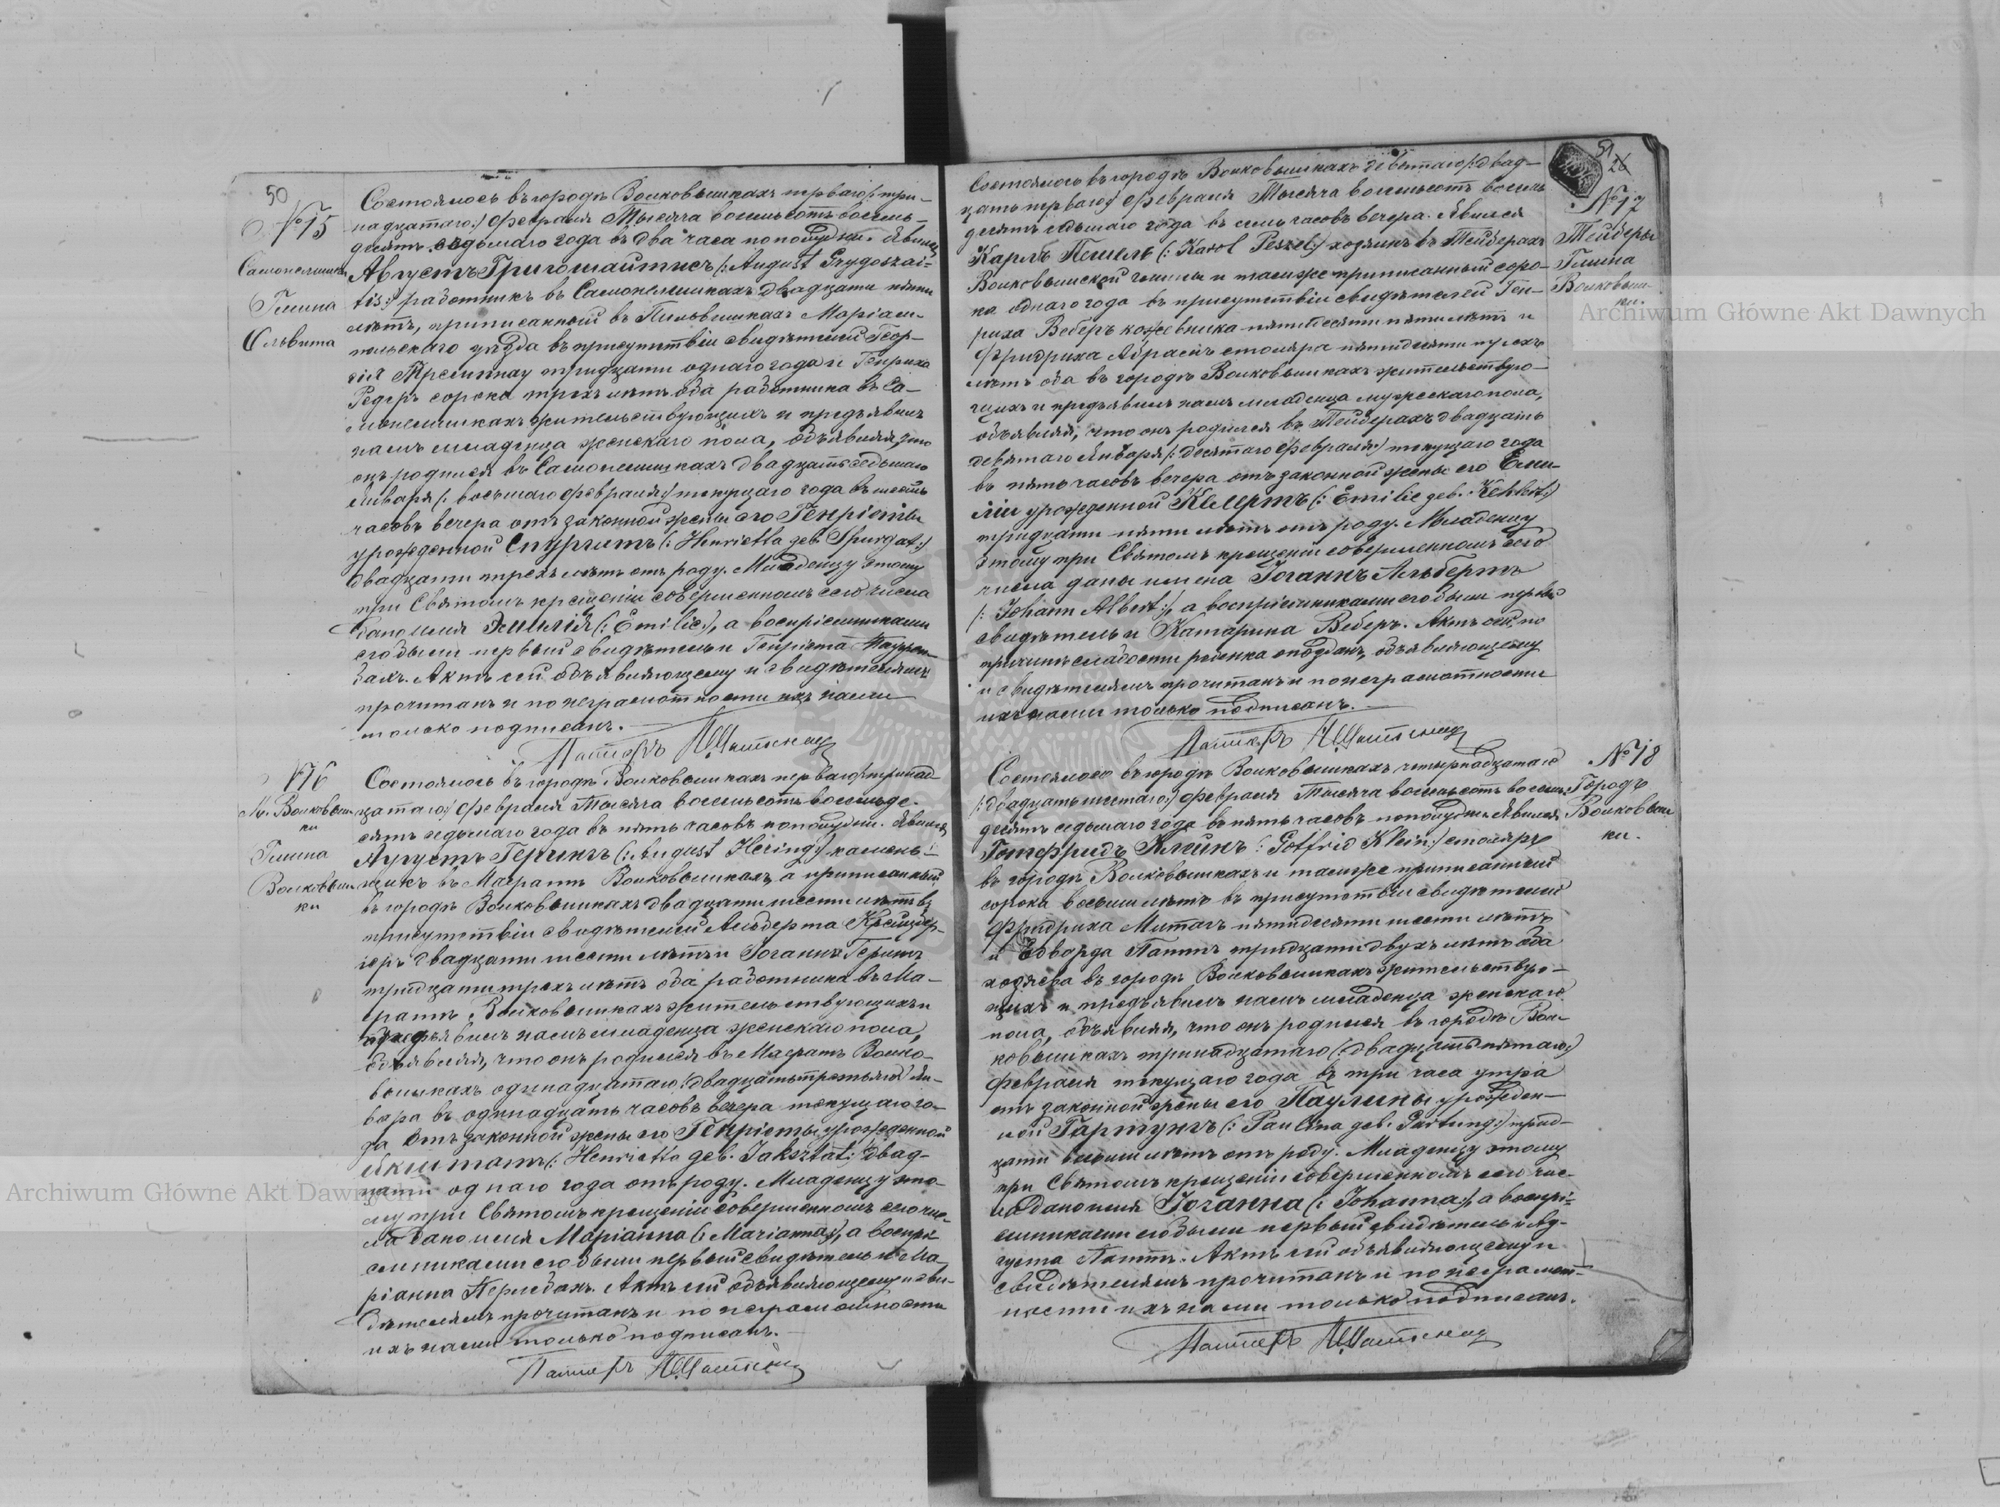 50
№ 15
Самонелишки
Гмина
Ольвита
Состоялось въ городѣ Волковышкахъ перваго /:три-
надцатаго:/ Февраля Тысяча восемьсотъ восемь-
десятъ седьмаго года въ два часа пополудни. Явился
Августъ Григошайтисъ (: August Grygoszai-
tis :) работникъ въ Самонелишкахъ двадцати пяти
лѣтъ, приписанный въ Пильвишкахъ Маріам-
польскаго уѣзда въ присутствіи свидѣтелей Геор-
гія тридцати одного года и Генриха
Редеръ сорока трехъ лѣтъ оба работника въ Са-
монелишкахъ жительствующихъ и предъявилъ
намъ младенца женскаго пола, объявляя, что
онъ родился въ Самонелишкахъ двадцать седьмаго
Января (: восьмаго Февраля:) текущаго года въ шесть
часовъ вечера отъ законной жены его Генріэты
урожденной Спургатъ (: Henrietta geb. Spurgat :)
двадцати трехъ лѣтъ отъ роду. Младенцу этому
при Святомъ крещеніи совершенномъ сего числа
дано имя Эмилія (: Emilie :), а воспріемниками
его были первый свидѣтель и Генріэта
Актъ сей объявляющему и свидѣтелямъ
прочитанъ и по неграмотности ихъ нами
только подписанъ.
Пасторъ
№ 16
М. Волковыш-
ки
Гмина
Волковыш-
ки
Состоялось въ городѣ Волковышкахъ перваго /:тринад-
цатаго:/ Февраля Тысяча восемьсотъ восемьде-
сятъ седьмаго года въ пять часовъ пополудни. Явился
Аугустъ Герингъ (: August Hering :) камень-
щикъ въ Маератѣ Волковышкахъ, а приписанный
въ городѣ Волковышкахъ двадцати шести лѣтъ въ
присутствіи свидѣтелей Альберта Крейцбер-
геръ двадцати шести лѣтъ и Іоганна Герингъ
тридцати трехъ лѣтъ оба работника въ Ма-
ератѣ Волковышкахъ жительствующихъ и
предъявилъ намъ младенца женскаго пола,
объявляя, что онъ родился въ Маератѣ Волко-
вышкахъ одинадцатаго /:двадцать третьяго:/ Ян-
варя въ одинадцать часовъ вечера текущаго го-
да отъ законной жены его Генріеты урожденной
Якштатъ (: Henrietta geb. Jaksztat :) двад-
цати одного года отъ роду. Младенцу это-
му при Святомъ крещеніи совершенномъ сего чис-
ла дано имя Маріанна (: Marianna :), а воспрі-
емниками его были первый свидѣтель и Ма-
ріанна Актъ сей объявляющему и сви-
дѣтелямъ прочитанъ и по неграмотности
ихъ нами только подписанъ.
Пасторъ
51
26
№ 17
Тейберы
Гмина
Волковыш-
ки.
Состоялось въ городѣ Волковышкахъ девятаго /:двад-
цать перваго:/ Февраля Тысяча восемьсотъ восемь
десятъ седьмаго года въ семь часовъ вечера. Явился
Карлъ Пешель (: Karol Peszel :) хозяинъ въ Тейберахъ
Волковышской гмины и тамже приписанный соро-
ка одного года въ присутствіи свидѣтелей Ген-
риха Веберъ кожевника пятидесяти пяти лѣтъ и
Фридриха Абрамъ столяра пятидесяти трехъ
лѣтъ оба въ городѣ Волковышкахъ жительствую-
щихъ и предъявилъ намъ младенца мужескаго пола,
объявляя, что онъ родился въ Тейберахъ двадцать
девятаго Января (: десятаго Февраля:) текущаго года
въ пять часовъ вечера отъ законной жены его Еми-
ліи урожденной Келертъ (: Emilie geb. Kehlert :)
тридцати пяти лѣтъ отъ роду. Младенцу
этому при Святомъ крещеніи совершенномъ сего
числа даны имена Іоганнъ Альбертъ
(: Johann Albert :), а воспріемниками его были первый
свидѣтель и Катарина Веберъ. Актъ сей по
причинѣ слабости ребенка опозданъ, объявляющему
и свидѣтелямъ прочитанъ и по неграмотности
ихъ нами только подписанъ.
Пасторъ
№ 18
Городъ
Волковыш-
ки.
Состоялось въ городѣ Волковышкахъ четырнадцатаго
/:двадцать шестаго:/ Февраля Тысяча восемьсотъ восемь-
десятъ седьмаго года въ пять часовъ пополудни. Явился
Готфридъ Клейнъ (: Gottfrid Klein :) столяръ
въ городѣ Волковышкахъ и тамже приписанный
сорока восьми лѣтъ въ присутствіи свидѣтелей
Фридриха Миташъ пятидесяти шести лѣтъ
и Едварда Паттъ тридцати двухъ лѣтъ оба
хозяева въ городѣ Волковышкахъ жительствую-
щихъ и предъявилъ намъ младенца женскаго
пола, объявляя, что онъ родился въ городѣ Вол-
ковышкахъ тринадцатаго (: двадцать пятаго:)
Февраля текущаго года въ три часа утра
отъ законной жены его Паулины урожден-
ной Гартунгъ (: Paulina geb. Gartung :) трид-
цати восьми лѣтъ отъ роду. Младенцу этому
при Святомъ крещеніи совершенномъ сего чис-
ла дано имя Іоганна (: Johanna :), а воспрі-
емниками его были первый свидѣтель и Ав-
густа Паттъ. Актъ сей объявляющему и
свидѣтелямъ прочитанъ и по неграмот-
ности ихъ нами только подписанъ.
Пасторъ
Archiwum Główne Akt Dawnych
Archiwum Główne Akt Dawnych